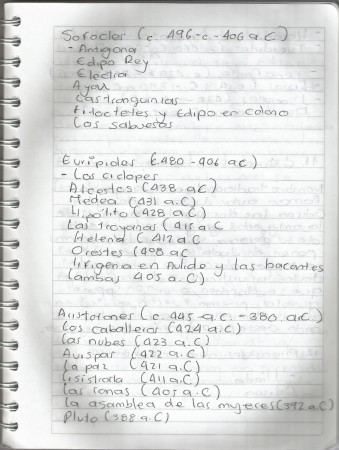 Sofocles (c. 496-c-406 a.C)
- Antigona
Edipo Rey
Electra
Ayax
Las tranquinias
Filoctetes y Edipo en colono
Los sabuesos
Euripides (c.480-406 a.C)
- Los ciclopes
Alcestes (438 a.C)
Medea (431 a.C)
Hipólito (428 a.C)
Las troyanas (415 a.C
Helena (412 a.C
Orestes (408 a.C
Ifigenia en Aulide y las bacantes
(ambas 405 a.C)
Aristofanes (c. 445-a.C.-380 a.C)
Los caballeros (424 a.C)
Las nubes (423 a.C)
Avispas (422 a.C)
La paz (421 a.C)
Lisistrata (411 a.C)
Las ranas (405 a.C)
La asamblea de las mujeres (392 a.C)
Pluto (388 a.C)